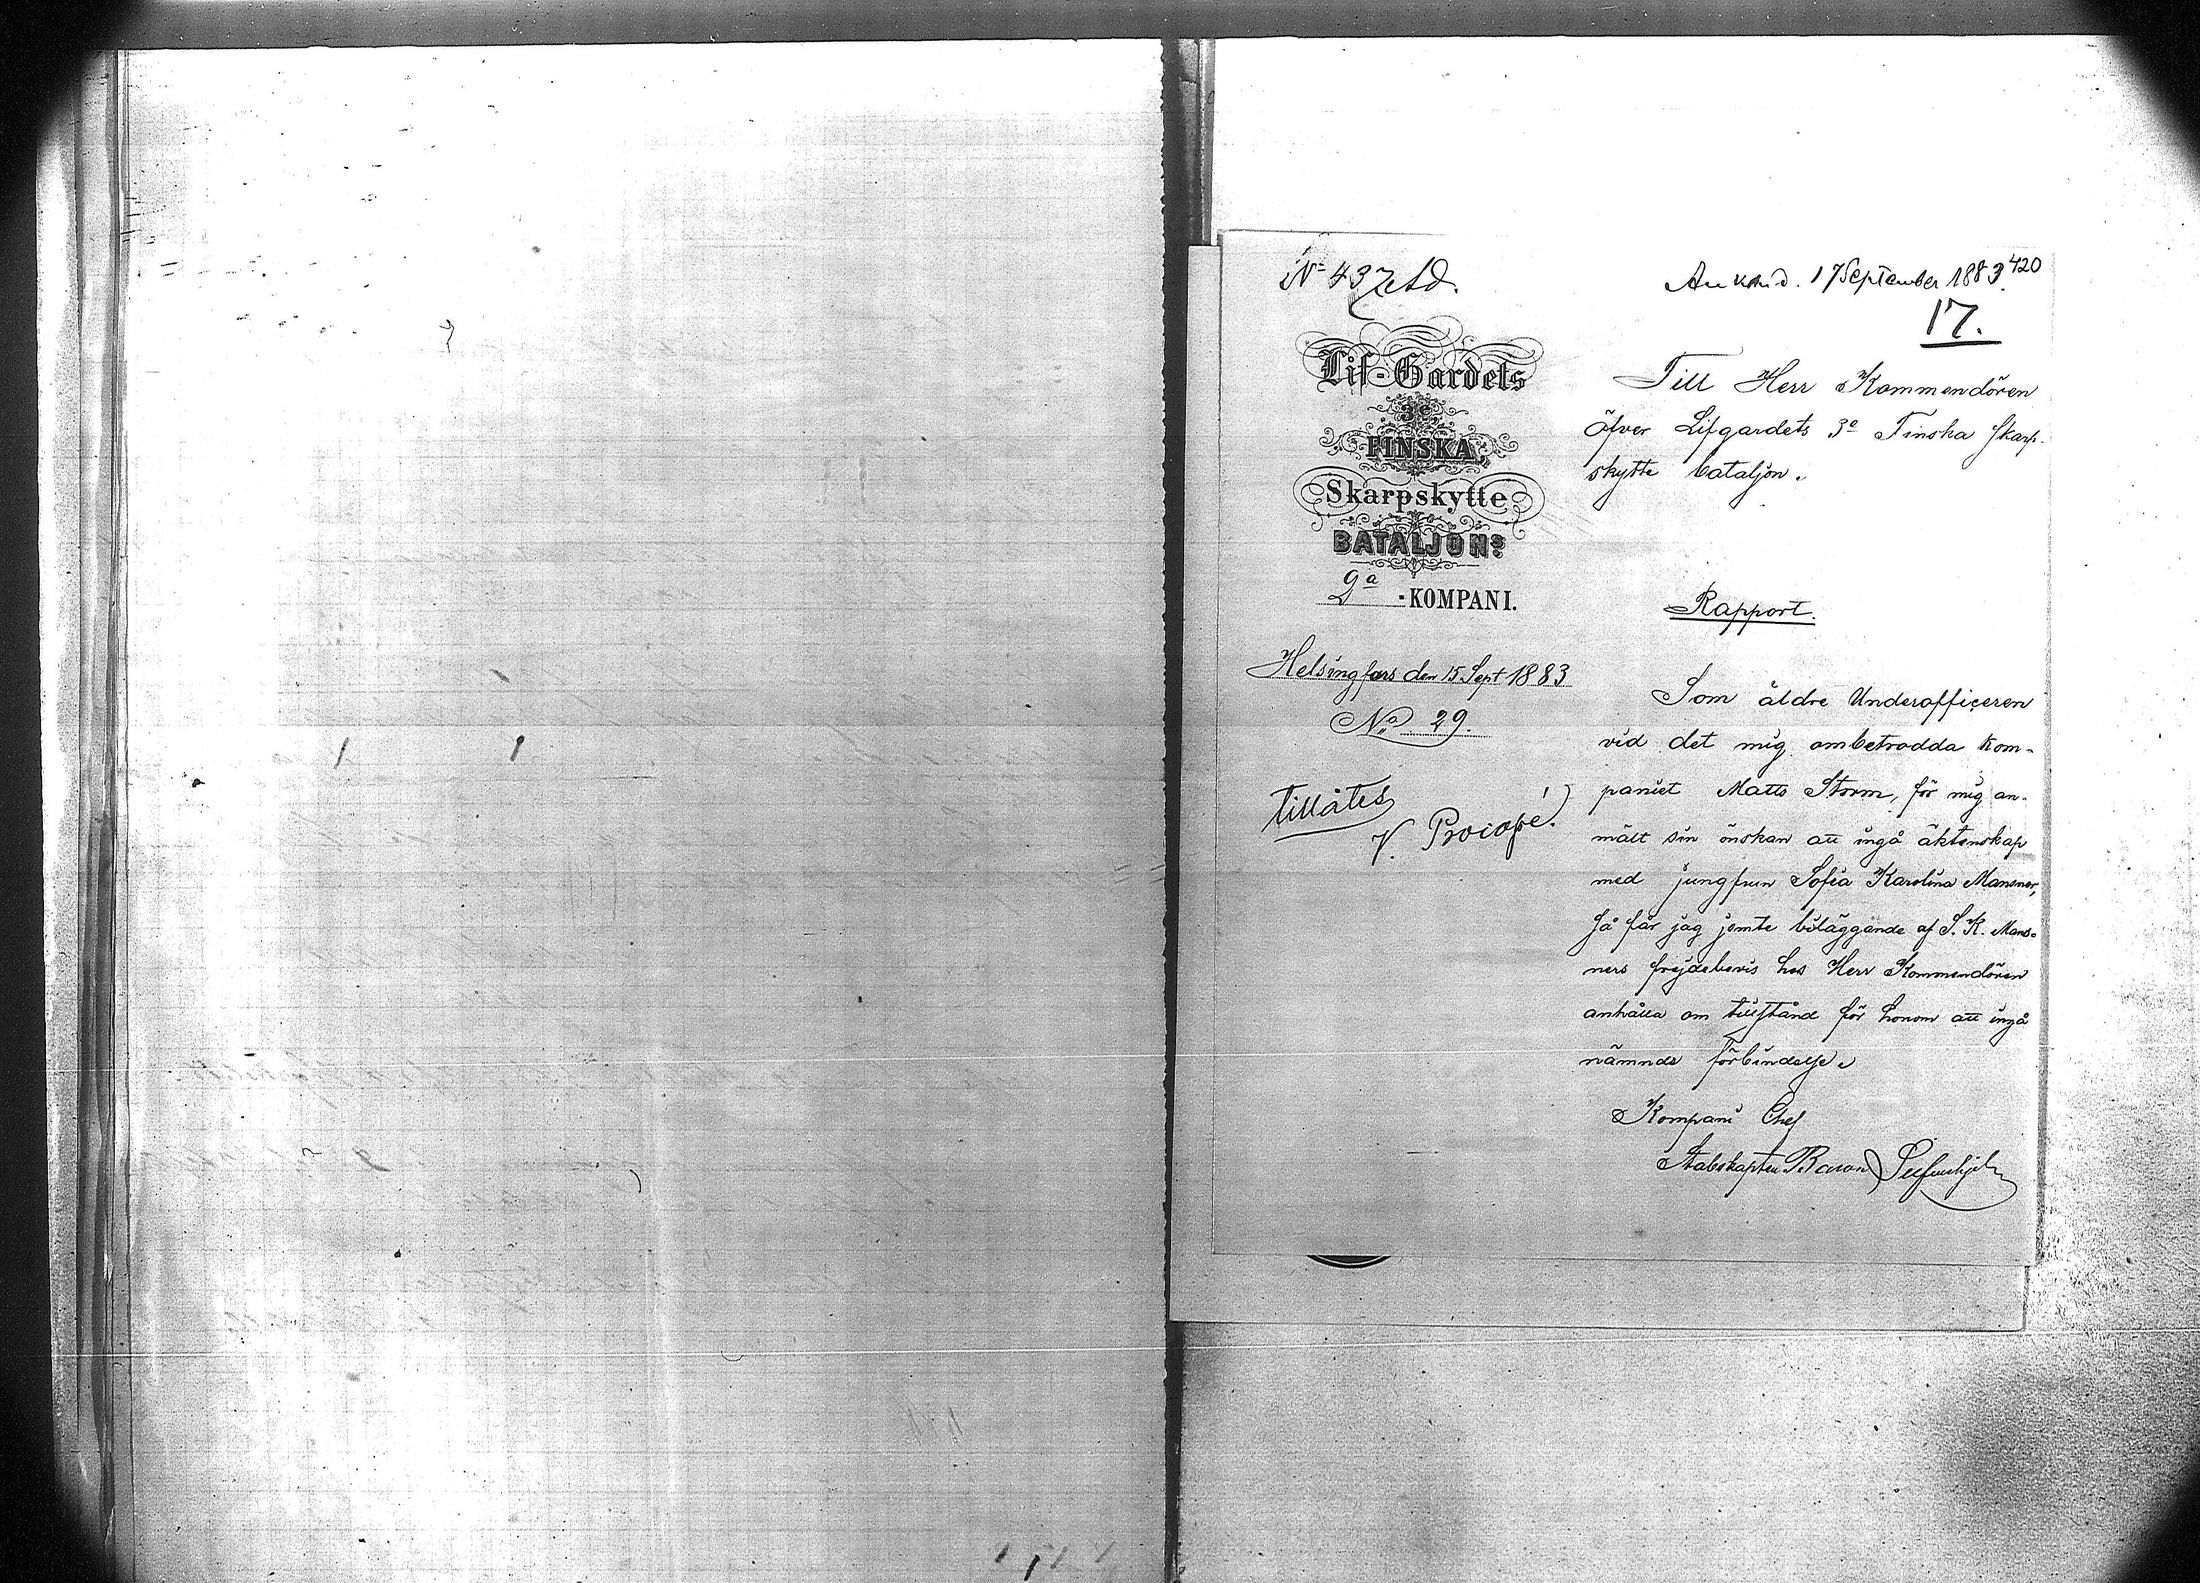 Nº 437 Ad.
Ank. d. 17 September 1883.
420
17.
Lif-Gardets
3e
FINSKA
Skarpskytte
BATALJONS
2a -KOMPANI.
Helsingfors den 15 Sept 1883
No 29.
Tillåtes
V. Procopé.
Till Herr Kommendören
öfver Lifgardets 3e Finska Skarp-
skytte bataljon.
Rapport.
Som äldre Underofficeren
vid det mig ombetrodda kom-
paniet Matts Storm, för mig an-
mält sin önskan att ingå äktenskap
med jungfrun Sofia Karolina Mansner,
så får jag jemte biläggande af S. K. Mans-
ners frejdebevis hos Herr Kommendören
anhålla om tillstånd för honom att ingå
nämnde förbindelse.
Kompani Chef
Stabskapten Baron